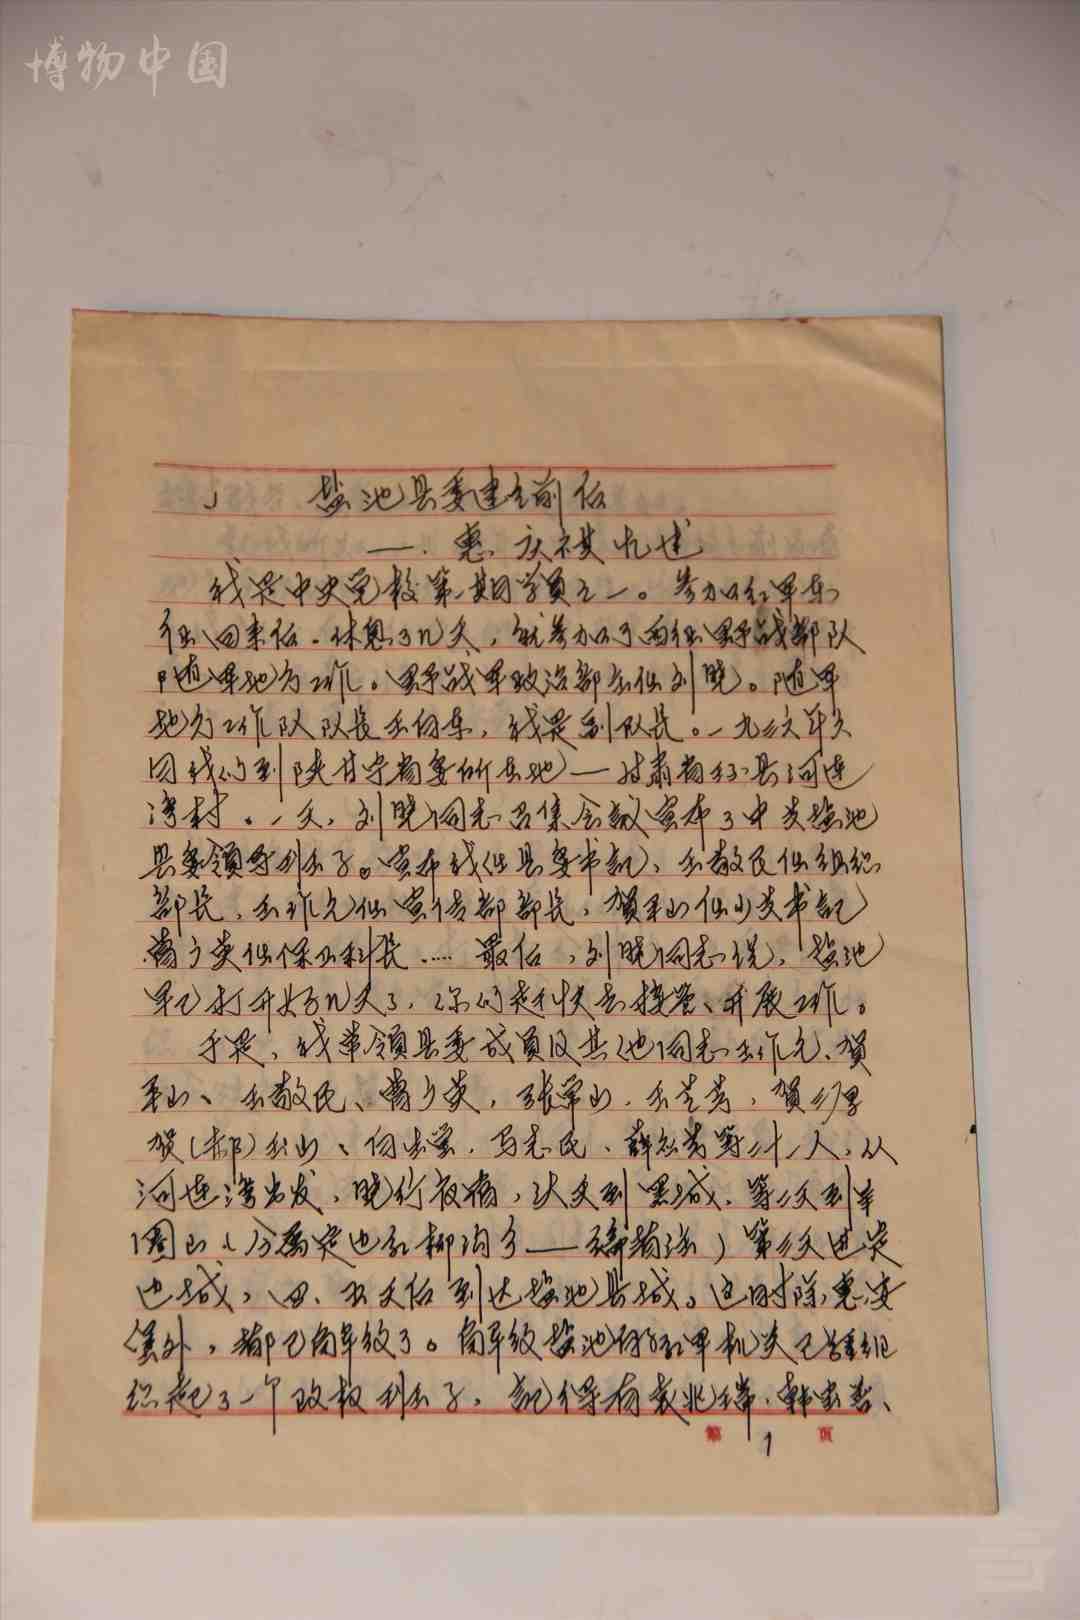 博物中国
盐池县委建立前后
——惠庆祺忆述
我是中央党校第一期学员之一。参加红军东
征回来后。休息了几天，就参加了西征野战部队
随军地方工作。野战军政治部主任刘晓。随军
地方工作队队长王向东，我是副队长。一九三六年六
月我们到陕甘宁省委所在地——甘肃省环县河连
湾村。一天，刘晓同志召集会议宣布了中共盐池
县委领导班子。宣布我任县委书记、王敬民任组织
部长，王作元任宣传部部长，贺平山任少共书记
任保卫科长……最后，刘晓同志说，盐池
早已打开好几天了，你们赶快去接管、开展工作。
于是，我带领县委成员及其他同志王作元、贺
平山、王敬民、张常山、王芝芳，贺
贺（郝）玉山、马志民、薛等二十一人，从
河连湾出发，晓行夜宿，头天到黑城，第二天到
山（今属定边红柳沟乡——）第三天进定
边城，四、五天后到达盐池县城。这时除惠安
堡外，都已解放了。解放盐池的红军机关已经组
织起了一个政权班子，记得有
第 1 页